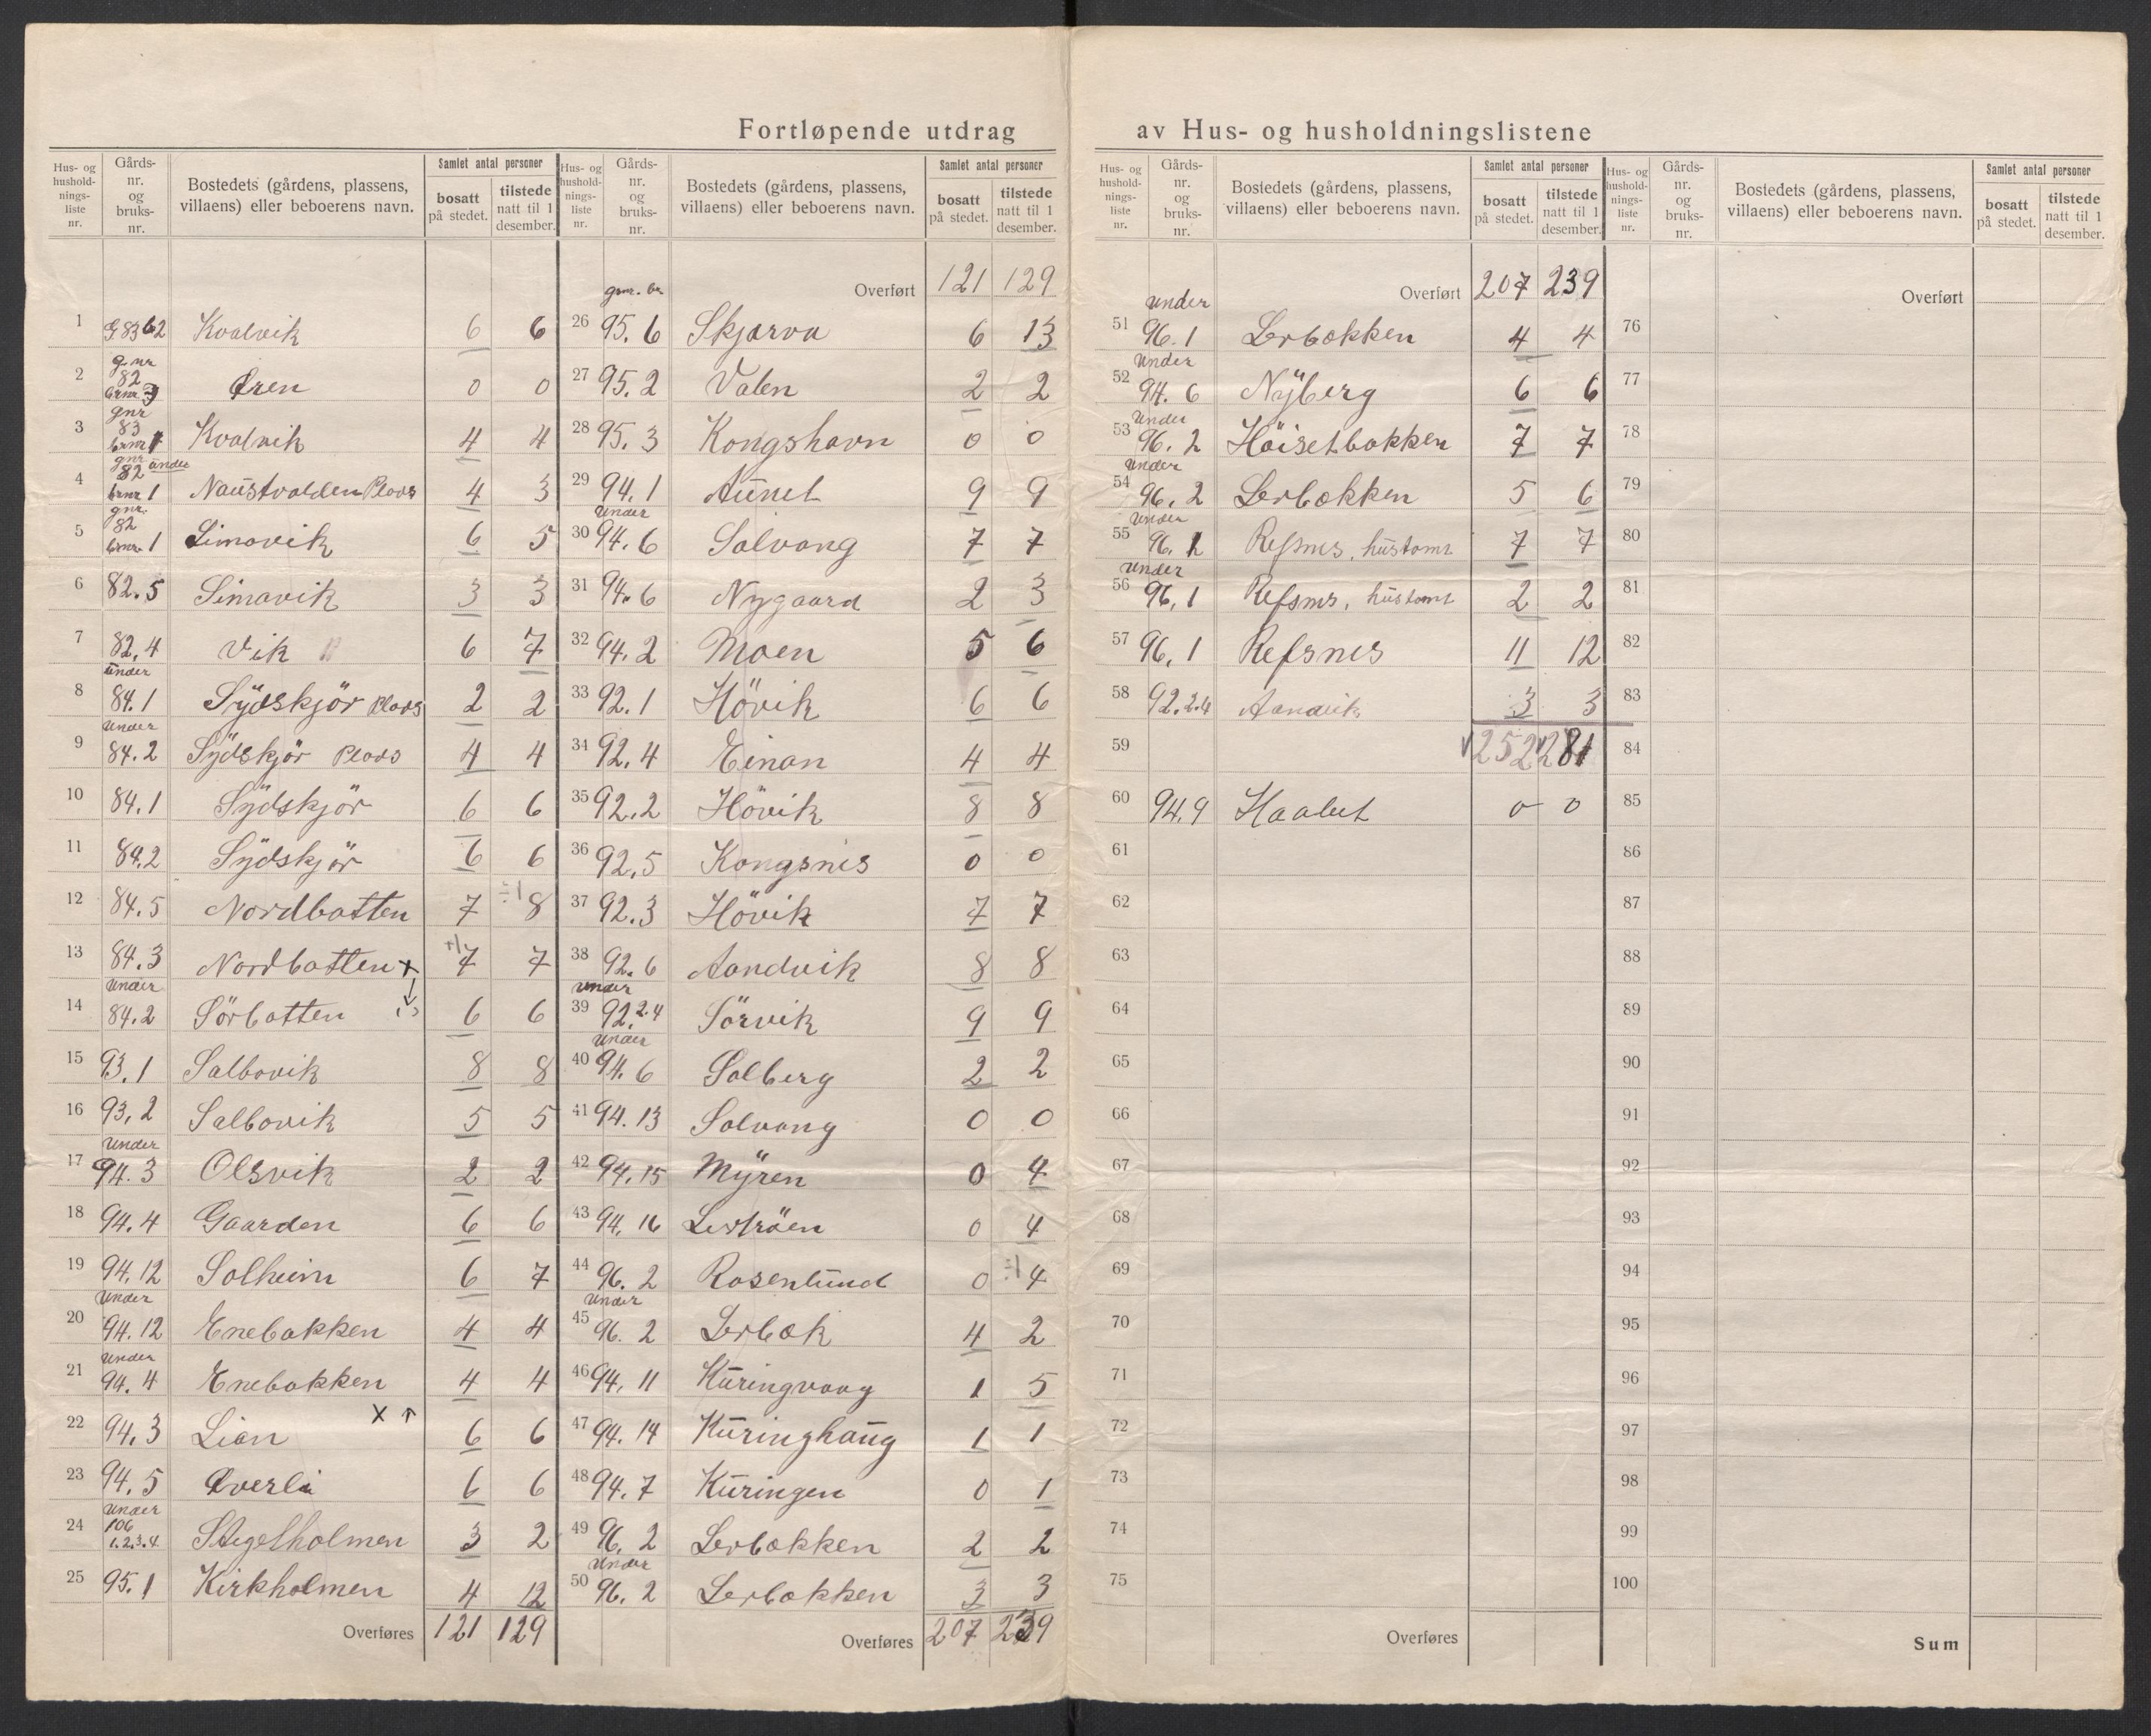 Fortløpende utdrag av Hus- og husholdningslistene
Hus- og husholdnings-liste nr. Gårds-nr. og bruks-nr. Bostedets (gårdens, plassens, villaens) eller beboerens navn. Samlet antal personer bosatt på stedet. tilstede natt til 1 desember.
1 G 83 b 2 Kvalvik 6 6
2 gnr 82 brnr 3 Øren 0 0
3 gnr 83 brnr 1 Kvalvik 4 4
4 gnr 82 under brnr 1 Naustvolden Plads 4 3
5 gnr. 82 brnr 1 Simavik 6 5
6 82.5 Simavik 3 3
7 82.4 Vik 6 7
8 under 84.1 Sydskjör Plads 2 2
9 under 84.2 Sydskjör Plads 4 4
10 84.1 Sydskjör 6 6
11 84.2 Sydskjör 6 6
12 84.5 Nordbotten 7 ÷1 8
13 84.3 Nordbotten x +1 7 7
14 under 84.2 Sörbotten 6 6
15 93.1 Salbovik 8 8
16 93.2 Salbovik 5 5
17 under 94.3 Olsvik 2 2
18 94.4 Gaarden 6 6
19 94.12 Solheim 6 7
20 under 94.12 Enebakken 4 4
21 under 94.4 Enebakken 4 4
22 94.3 Lian x ↑ 6 6
23 94.5 Øverli 6 6
24 under 106 1.2.3.4 Stegelholmen 3 2
25 95.1 Kirkholmen 4 12
Overføres 121 129
Hus- og husholdnings-liste nr. Gårds-nr. og bruks-nr. Bostedets (gårdens, plassens, villaens) eller beboerens navn. Samlet antal personer bosatt på stedet. tilstede natt til 1 desember.
Overført 121 129
26 95.6 Skjærva 6 13
27 95.2 Valen 2 2
28 95.3 Kongshavn 0 0
29 94.1 Aunet 9 9
30 under 94.6 Solvang 7 7
31 94.6 Nygaard 2 3
32 94.2 Moen 5 6
33 92.1 Hövik 6 6
34 92.4 Einan 4 4
35 92.2 Hövik 8 8
36 92.5 Kongsnes 0 0
37 92.3 Hövik 7 7
38 92.6 Aandvik 8 8
39 under 92.2.4 Sörvik 9 9
40 under 94.6 Solberg 2 2
41 94.13 Solvang 0 0
42 94.15 Myren 0 4
43 94.16 0 4
44 96.2 Rosenlund 0 ÷1 4
45 under 96.2 Lerbæk 4 2
46 94.11 Kuringvaag 1 5
47 94.14 Kuringhaug 1 1
48 94.7 Kuringen 0 1
49 96.2 Lerbækken 2 2
50 under 96.2 Lerbækken 3 3
Overføres 207 239
Hus- og husholdnings-liste nr. Gårds-nr. og bruks-nr. Bostedets (gårdens, plassens, villaens) eller beboerens navn. Samlet antal personer bosatt på stedet. tilstede natt til 1 desember.
Overført 207 239
51 under 96.1 Lerbækken 4 4
52 under 94.6 Nyberg 6 6
53 under 96.2 Höisetbakken 7 7
54 under 96.2 Lerbækken 5 6
55 under 96.1 Refsnes, hustomt 7 7
56 under 96.1 Refsnes, hustomt 2 2
57 96.1 Refsnes 11 12
58 92.2.4 Aandvik 3 3
59 252 281
60 94.9 Haabet 0 0
61
62
63
64
65
66
67
68
69
70
71
72
73
74
75
Overføres
Hus- og husholdnings-liste nr. Gårds-nr. og bruks-nr. Bostedets (gårdens, plassens, villaens) eller beboerens navn. Samlet antal personer bosatt på stedet. tilstede natt til 1 desember.
Overført
76
77
78
79
80
81
82
83
84
85
86
87
88
89
90
91
92
93
94
95
96
97
98
99
100
Sum